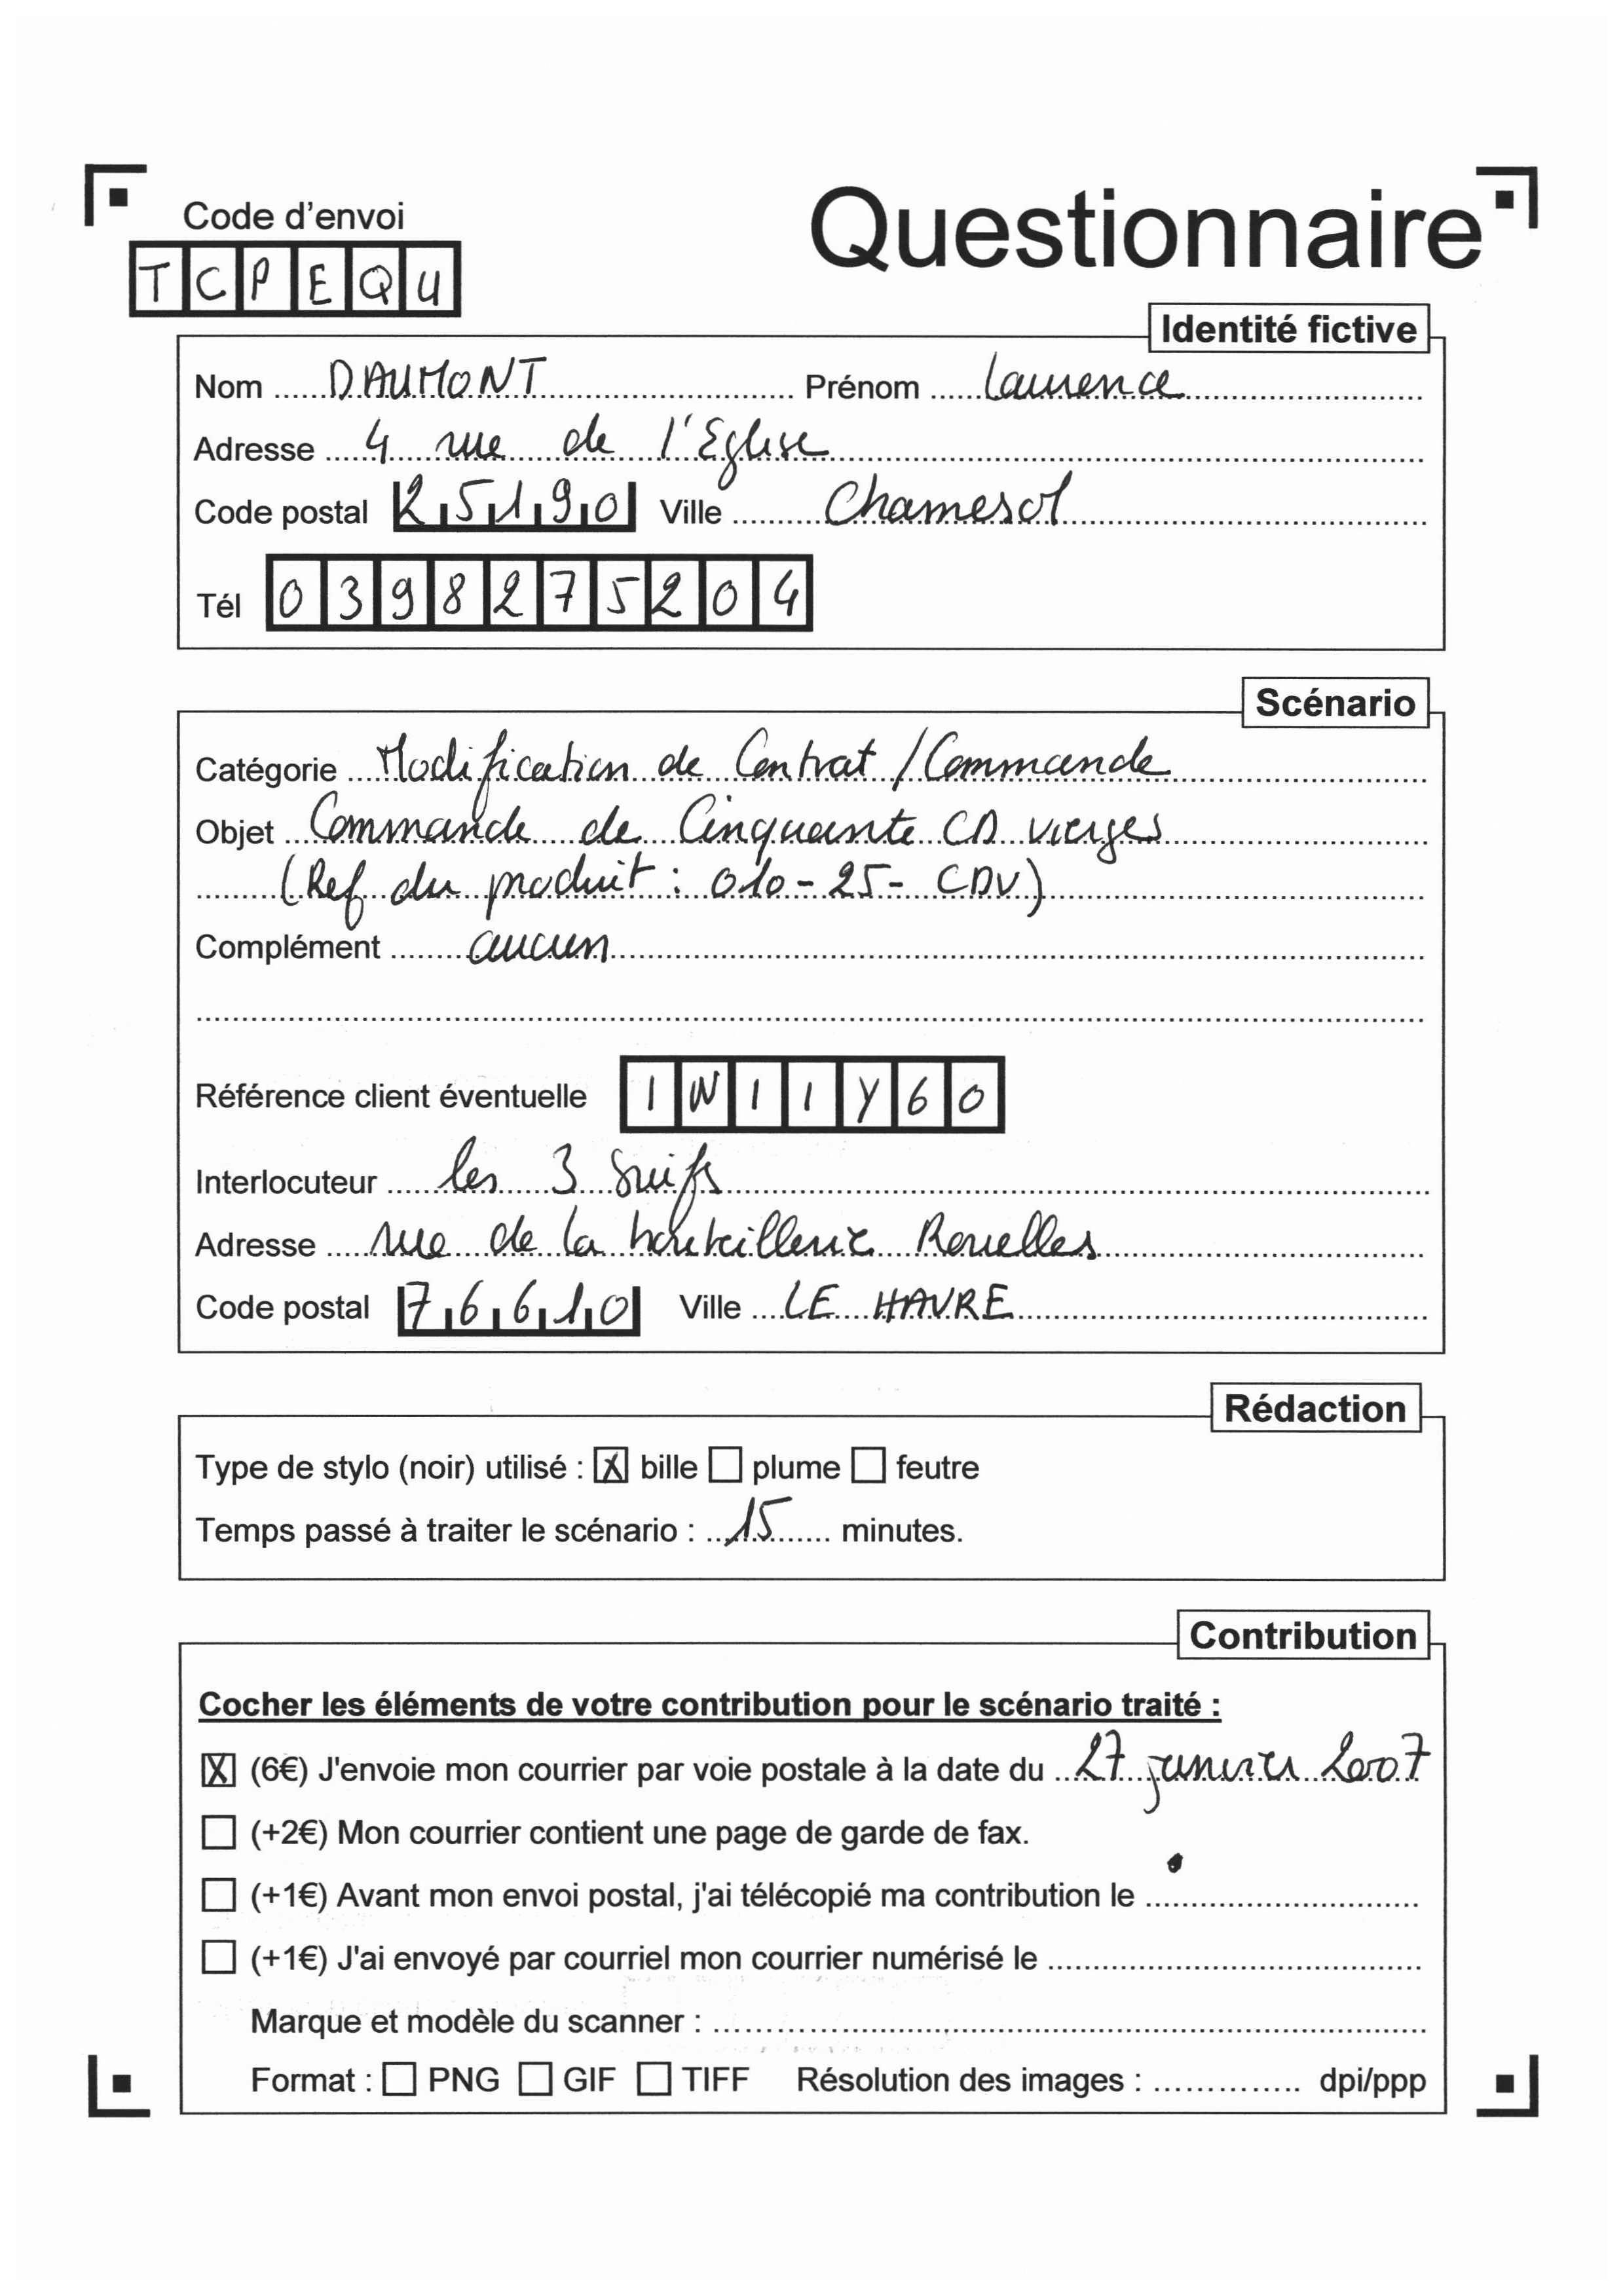 Code d'envoi
TCPEQU
Questionnaire
Identité fictive
Nom DAUMONT Prénom Laurence
Adresse 4 rue de l'Eglise
Code postal 25190 Ville Chamesol
Tél 0398275204
Scénario
Catégorie Modification de Contrat / Commande
Objet Commande de Cinquante CD vierges
(Ref du produit : 010-25-CDV)
Complément aucun
Référence client éventuelle INIIY60
Interlocuteur les 3 suifs
Adresse rue de la bouteillerie Rouelles
Code postal 76610 Ville LE HAVRE
Rédaction
Type de stylo (noir) utilisé : ☒ bille ☐ plume ☐ feutre
Temps passé à traiter le scénario : 15 minutes.
Contribution
Cocher les éléments de votre contribution pour le scénario traité :
☒ (6€) J'envoie mon courrier par voie postale à la date du 27 janvier 2007
☐ (+2€) Mon courrier contient une page de garde de fax.
☐ (+1€) Avant mon envoi postal, j'ai télécopié ma contribution le
☐ (+1€) J'ai envoyé par courriel mon courrier numérisé le
Marque et modèle du scanner :
Format : ☐ PNG ☐ GIF ☐ TIFF Résolution des images : dpi/ppp